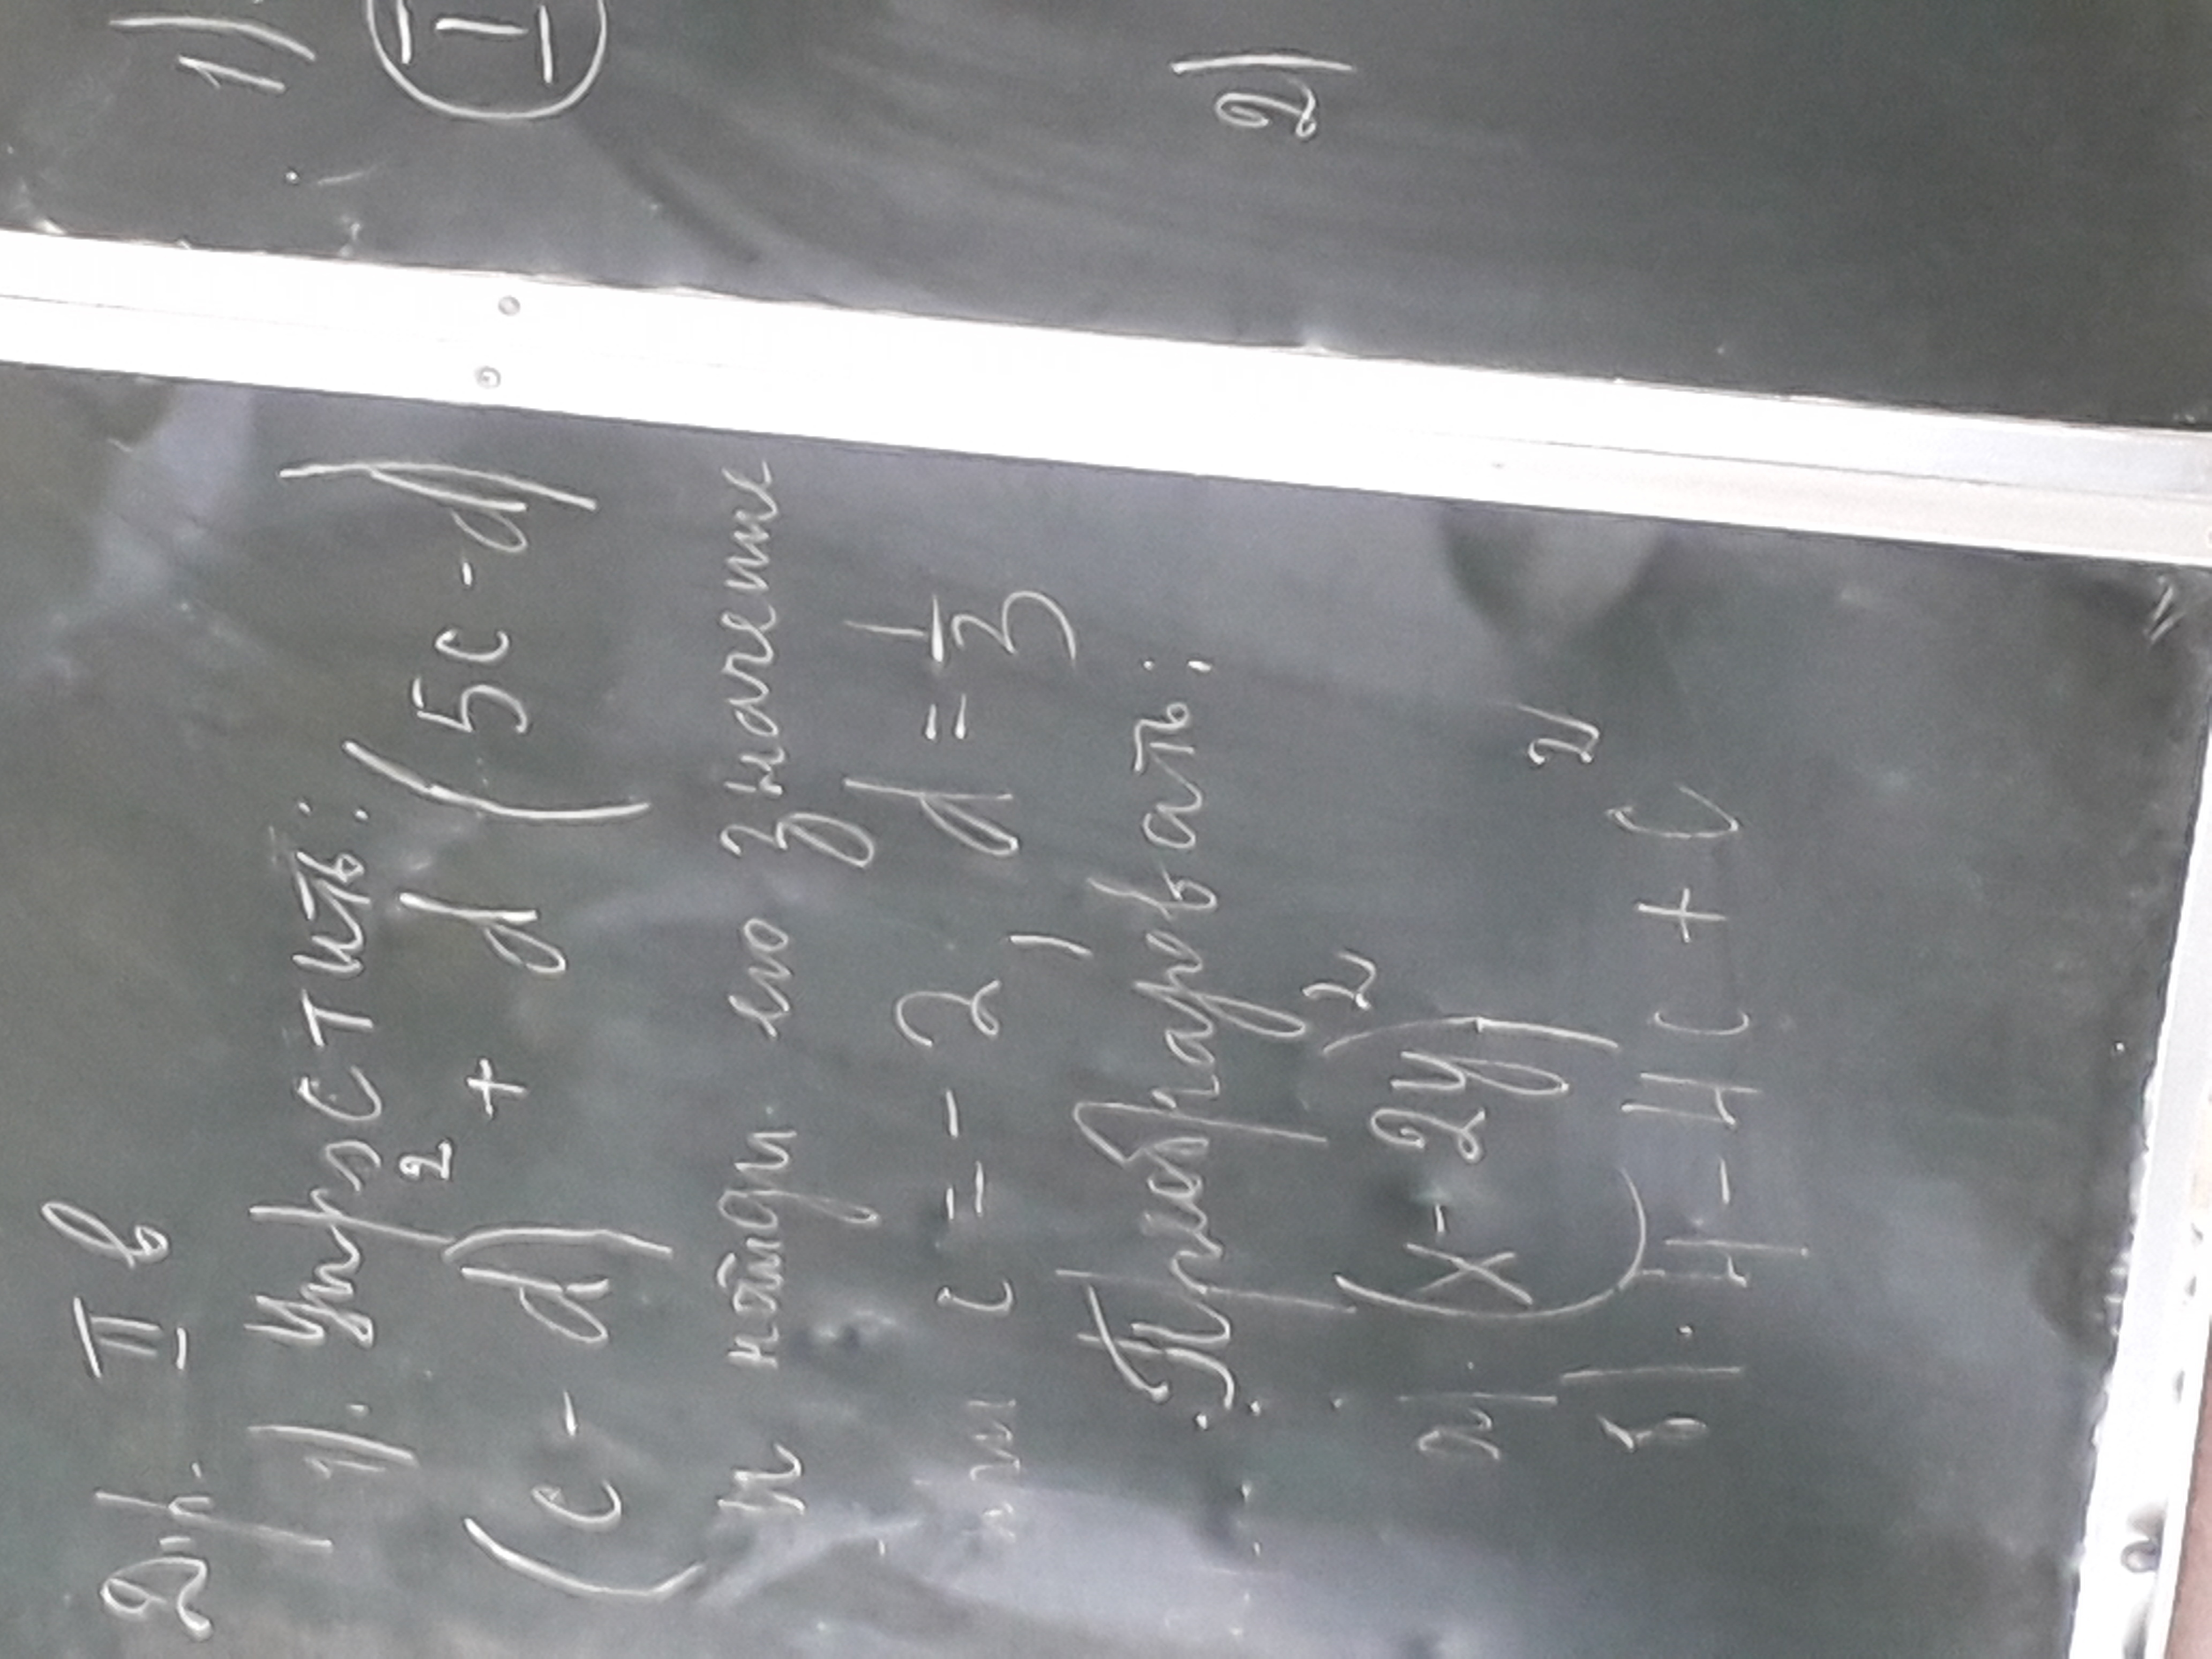 II в
1). Упростить:
(c - d)² + d (5c - d)
и найди его значение
при c = - 2, d = 1/3
Преобразовать:
а). (x - 2y)²
б). 4 - 4c + c²
1)
I
2)